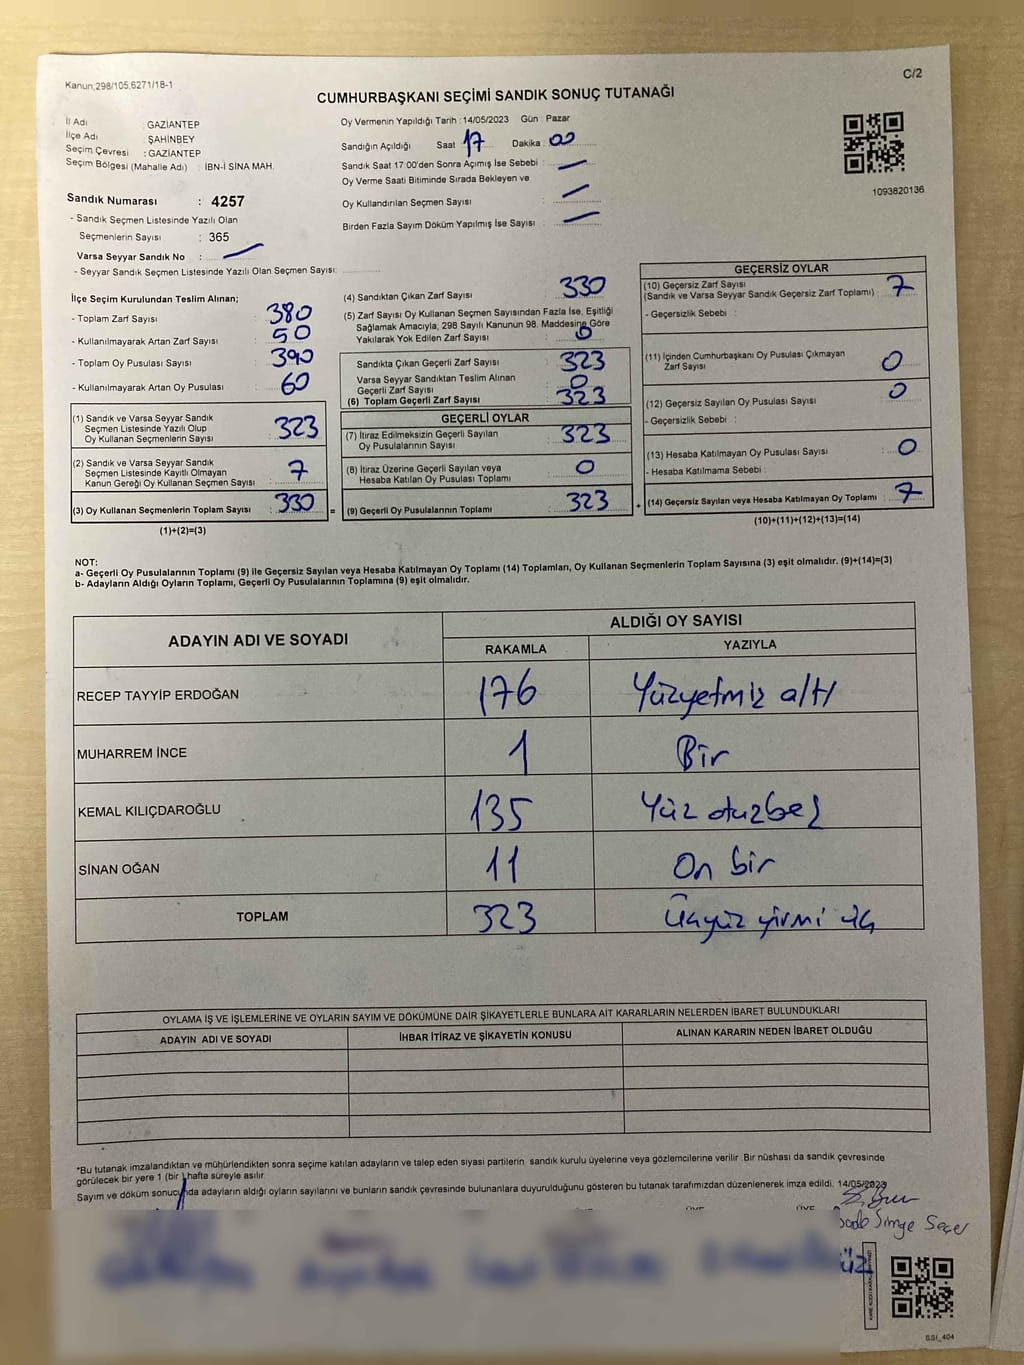 Kanun;298/105,6271/18-1
C/2
CUMHURBAŞKANI SEÇİMİ SANDIK SONUÇ TUTANAĞI
İl Adı : GAZİANTEP
İlçe Adı : ŞAHİNBEY
Seçim Çevresi : GAZİANTEP
Seçim Bölgesi (Mahalle Adı) : İBN-İ SİNA MAH.
Oy Vermenin Yapıldığı Tarih : 14/05/2023 Gün : Pazar
Sandığın Açıldığı Saat : 17 Dakika : 00
Sandık Saat 17:00'den Sonra Açımış İse Sebebi : —
Oy Verme Saati Bitiminde Sırada Bekleyen ve
Oy Kullandırılan Seçmen Sayısı : —
Birden Fazla Sayım Döküm Yapılmış İse Sayısı : —
1093820136
Sandık Numarası : 4257
- Sandık Seçmen Listesinde Yazılı Olan
Seçmenlerin Sayısı : 365
Varsa Seyyar Sandık No : —
- Seyyar Sandık Seçmen Listesinde Yazılı Olan Seçmen Sayısı:
İlçe Seçim Kurulundan Teslim Alınan;
- Toplam Zarf Sayısı : 380
- Kullanılmayarak Artan Zarf Sayısı : 50
- Toplam Oy Pusulası Sayısı : 390
- Kullanılmayarak Artan Oy Pusulası : 60
(1) Sandık ve Varsa Seyyar Sandık
Seçmen Listesinde Yazılı Olup
Oy Kullanan Seçmenlerin Sayısı : 323
(2) Sandık ve Varsa Seyyar Sandık
Seçmen Listesinde Kayıtlı Olmayan
Kanun Gereği Oy Kullanan Seçmen Sayısı : 7
(3) Oy Kullanan Seçmenlerin Toplam Sayısı : 330 =
(1)+(2)=(3)
(4) Sandıktan Çıkan Zarf Sayısı : 330
(5) Zarf Sayısı Oy Kullanan Seçmen Sayısından Fazla İse, Eşitliği
Sağlamak Amacıyla, 298 Sayılı Kanunun 98. Maddesine Göre
Yakılarak Yok Edilen Zarf Sayısı : 0
Sandıkta Çıkan Geçerli Zarf Sayısı : 323
Varsa Seyyar Sandıktan Teslim Alınan
Geçerli Zarf Sayısı : 0
(6) Toplam Geçerli Zarf Sayısı : 323
GEÇERLİ OYLAR
(7) İtiraz Edilmeksizin Geçerli Sayılan
Oy Pusulalarının Sayısı : 323
(8) İtiraz Üzerine Geçerli Sayılan veya
Hesaba Katılan Oy Pusulası Toplamı : 0
(9) Geçerli Oy Pusulalarının Toplamı : 323 +
GEÇERSİZ OYLAR
(10) Geçersiz Zarf Sayısı
(Sandık ve Varsa Seyyar Sandık Geçersiz Zarf Toplamı) : 7
- Geçersizlik Sebebi :
(11) İçinden Cumhurbaşkanı Oy Pusulası Çıkmayan
Zarf Sayısı : 0
(12) Geçersiz Sayılan Oy Pusulası Sayısı : 0
- Geçersizlik Sebebi :
(13) Hesaba Katılmayan Oy Pusulası Sayısı : 0
- Hesaba Katılmama Sebebi :
(14) Geçersiz Sayılan veya Hesaba Katılmayan Oy Toplamı : 7
(10)+(11)+(12)+(13)=(14)
NOT:
a- Geçerli Oy Pusulalarının Toplamı (9) ile Geçersiz Sayılan veya Hesaba Katılmayan Oy Toplamı (14) Toplamları, Oy Kullanan Seçmenlerin Toplam Sayısına (3) eşit olmalıdır. (9)+(14)=(3)
b- Adayların Aldığı Oyların Toplamı, Geçerli Oy Pusulalarının Toplamına (9) eşit olmalıdır.
ADAYIN ADI VE SOYADI
ALDIĞI OY SAYISI
RAKAMLA YAZIYLA
RECEP TAYYİP ERDOĞAN 176 Yüzyetmiz altı
MUHARREM İNCE 1 Bir
KEMAL KILIÇDAROĞLU 135 Yüz otuzbeş
SİNAN OĞAN 11 On bir
TOPLAM 323 Üçyüz yirmi üç
OYLAMA İŞ VE İŞLEMLERİNE VE OYLARIN SAYIM VE DÖKÜMÜNE DAİR ŞİKAYETLERLE BUNLARA AİT KARARLARIN NELERDEN İBARET BULUNDUKLARI
ADAYIN ADI VE SOYADI İHBAR İTİRAZ VE ŞİKAYETİN KONUSU ALINAN KARARIN NEDEN İBARET OLDUĞU
*Bu tutanak imzalandıktan ve mühürlendikten sonra seçime katılan adayların ve talep eden siyasi partilerin sandık kurulu üyelerine veya gözlemcilerine verilir. Bir nüshası da sandık çevresinde
görülecek bir yere 1 (bir ) hafta süreyle asılır.
Sayım ve döküm sonucunda adayların aldığı oyların sayılarını ve bunların sandık çevresinde bulunanlara duyurulduğunu gösteren bu tutanak tarafımızdan düzenlenerek imza edildi. 14/05/2023
ÜYE ÜYE
Simge Seçer
SSI_404